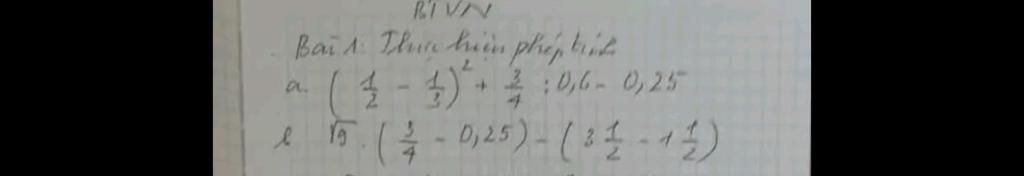 BTVN
Bài 1: Thực hiện phép tính
a. (1/2 - 1/3)² + 3/4 : 0,6 - 0,25
b √9 . (3/4 - 0,25) - (3 1/2 - 1 1/2)